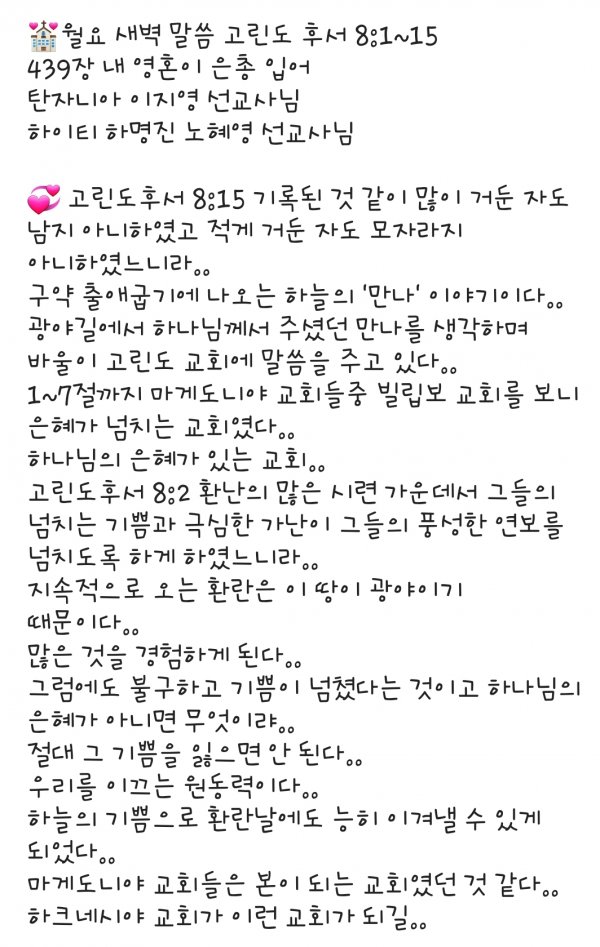 💒월요 새벽 말씀 고린도 후서 8:1~15
439장 내 영혼이 은총 입어
탄자니아 이지영 선교사님
하이티 하명진 노혜영 선교사님
💞 고린도후서 8:15 기록된 것 같이 많이 거둔 자도
남지 아니하였고 적게 거둔 자도 모자라지
아니하였느니라..
구약 출애굽기에 나오는 하늘의 '만나' 이야기이다..
광야길에서 하나님께서 주셨던 만나를 생각하며
바울이 고린도 교회에 말씀을 주고 있다..
1~7절까지 마게도니야 교회들중 빌립보 교회를 보니
은혜가 넘치는 교회였다..
하나님의 은혜가 있는 교회..
고린도후서 8:2 환난의 많은 시련 가운데서 그들의
넘치는 기쁨과 극심한 가난이 그들의 풍성한 연보를
넘치도록 하게 하였느니라..
지속적으로 오는 환란은 이 땅이 광야이기
때문이다..
많은 것을 경험하게 된다..
그럼에도 불구하고 기쁨이 넘쳤다는 것이고 하나님의
은혜가 아니면 무엇이랴..
절대 그 기쁨을 잃으면 안 된다..
우리를 이끄는 원동력이다..
하늘의 기쁨으로 환란날에도 능히 이겨낼 수 있게
되었다..
마게도니야 교회들은 본이 되는 교회였던 것 같다..
하크네시야 교회가 이런 교회가 되길..